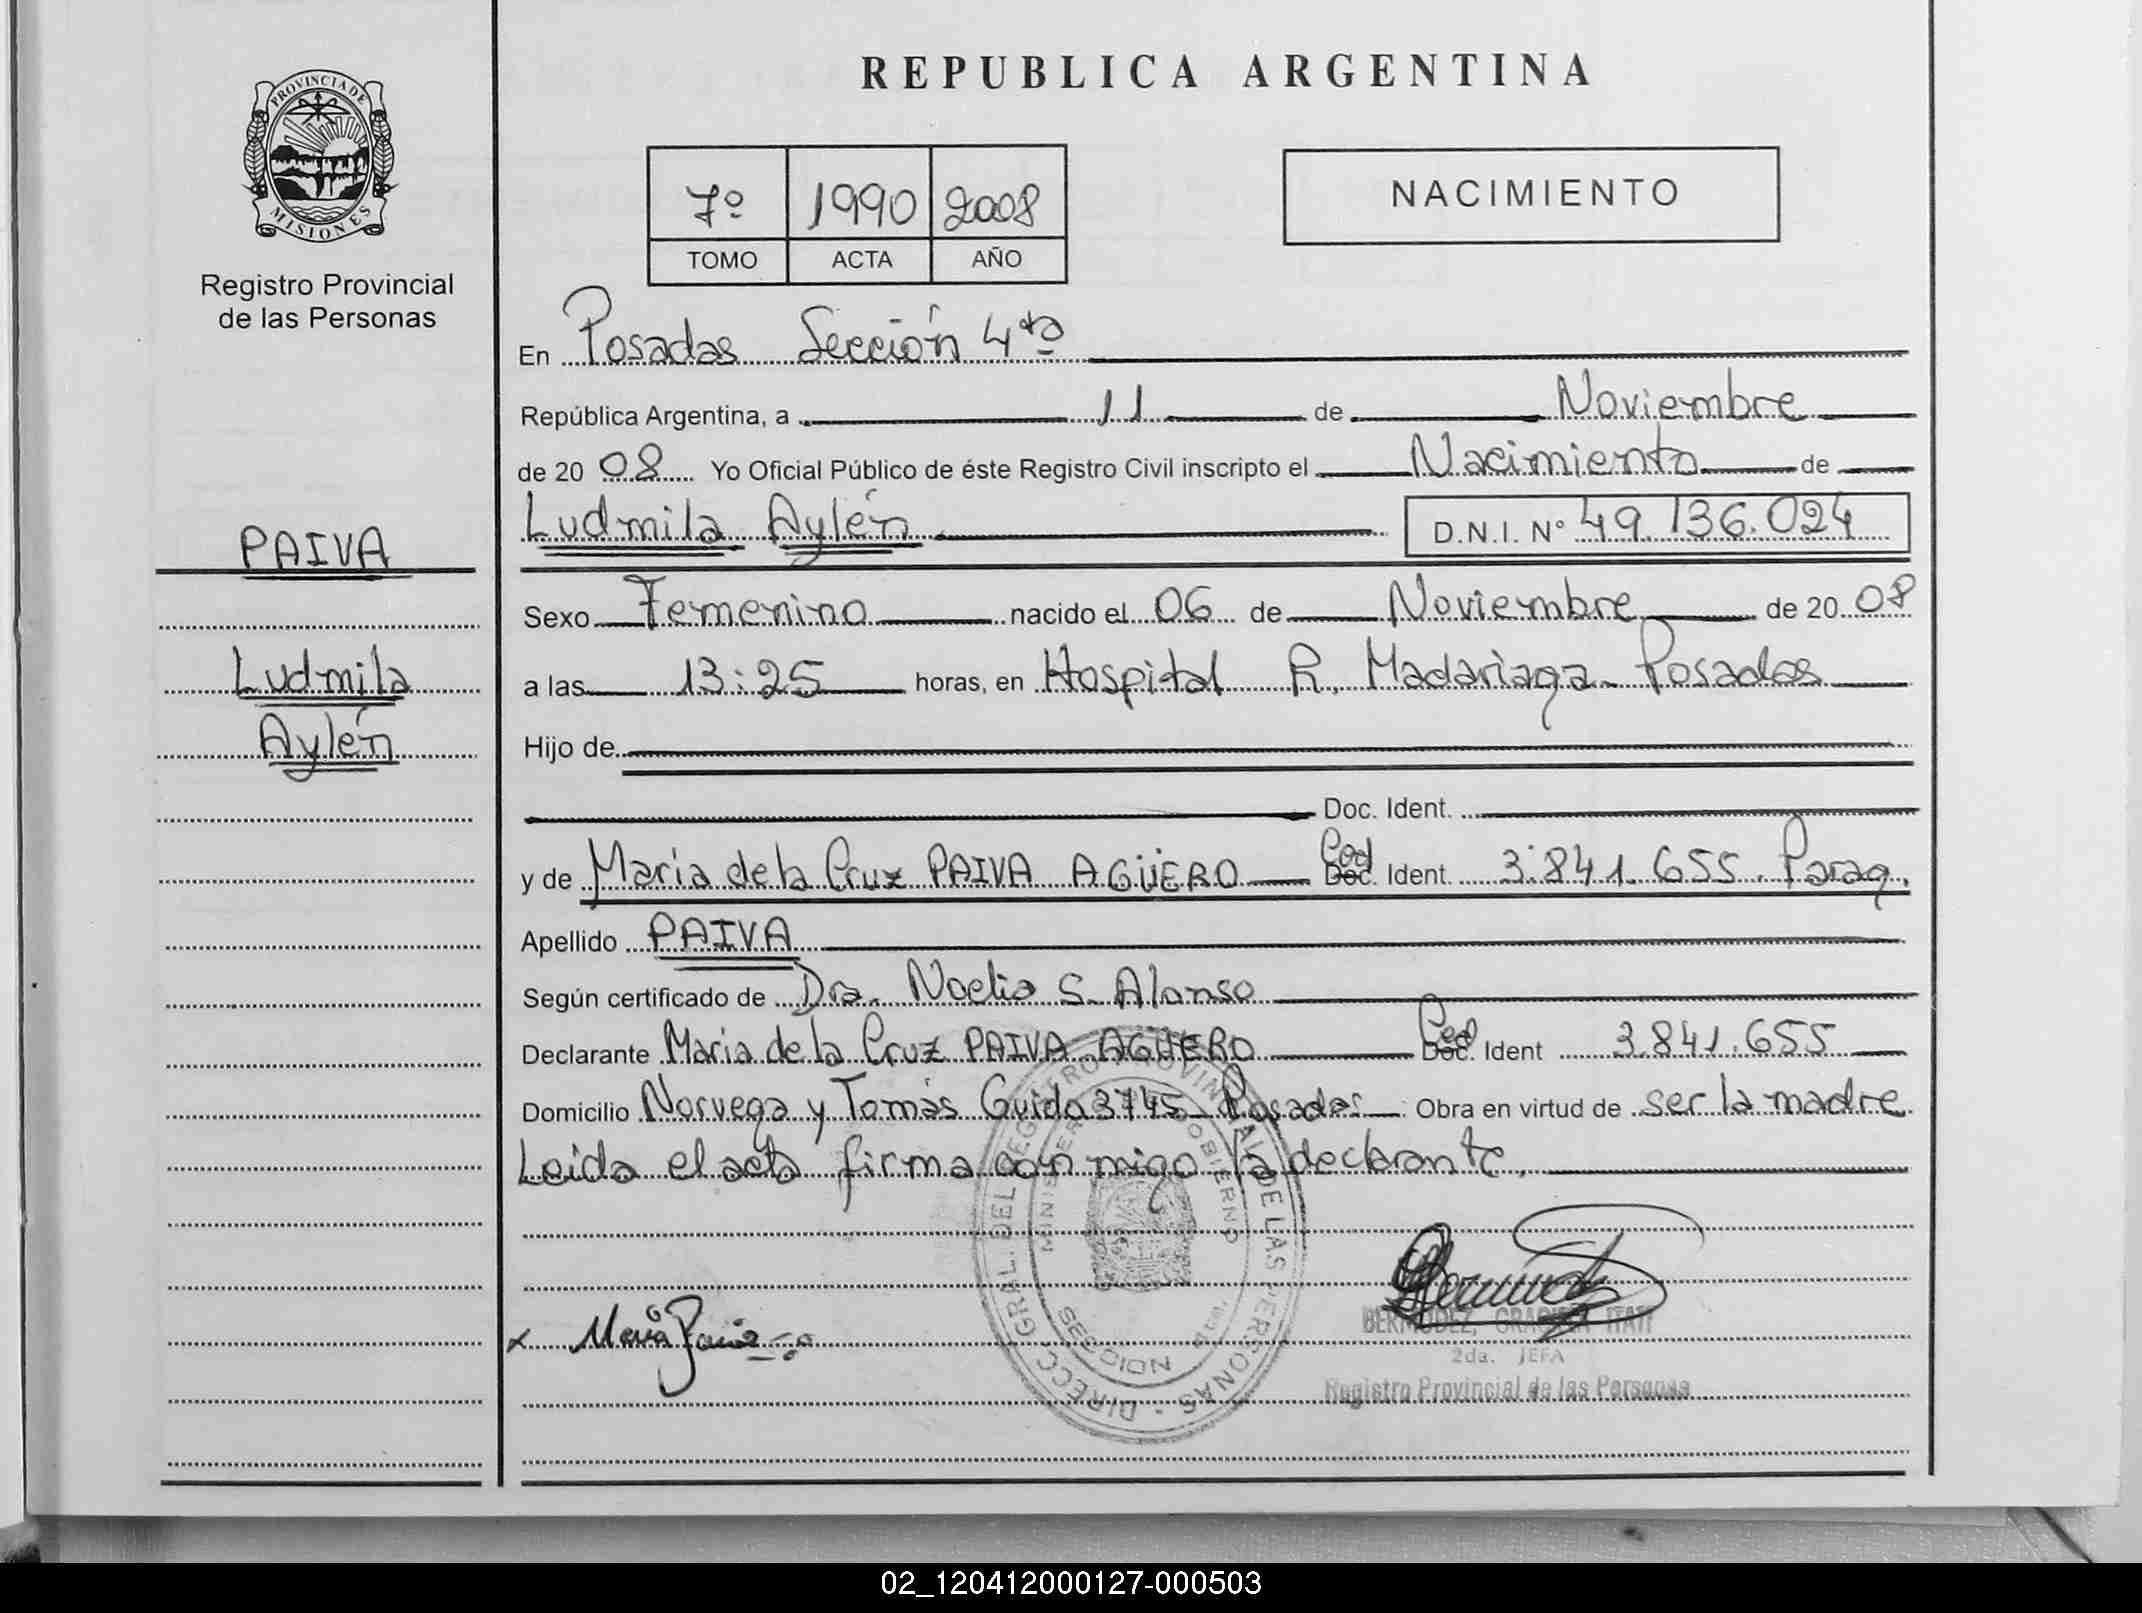 REPUBLICA ARGENTINA
PROVINCIA DE
MISIONES
Registro Provincial
de las Personas
7º 1990 2008
TOMO ACTA AÑO
NACIMIENTO
En Posadas Sección 4ta
República Argentina, a 11 de Noviembre
de 20 08 Yo Oficial Público de éste Registro Civil inscripto el Nacimiento de
Ludmila Aylén D.N.I. Nº 49.136.024
PAIVA
Ludmila
Aylén
Sexo Femenino nacido el 06 de Noviembre de 20 08
a las 13:25 horas, en Hospital R. Madariaga - Posadas
Hijo de
Doc. Ident.
y de Maria de la Cruz PAIVA AGÜERO Ced Ident. 3.841.655. Parag.
Apellido PAIVA
Según certificado de Dra. Noelia S. Alonso
Declarante Maria de la Cruz PAIVA AGÜERO Ced Ident 3.841.655
Domicilio Noruega y Tomás Guido 3745 - Posadas Obra en virtud de ser la madre
Leida el acta firma con migo la declarante.
DIRECC. GRAL. DEL REGISTRO PROVINCIAL DE LAS PERSONAS
MINISTERIO GOBIERNO
MISIONES
x Maria Paiva
BERMUDEZ, GRACIELA ITATI
2da. JEFA
Registro Provincial de las Personas
02_120412000127-000503